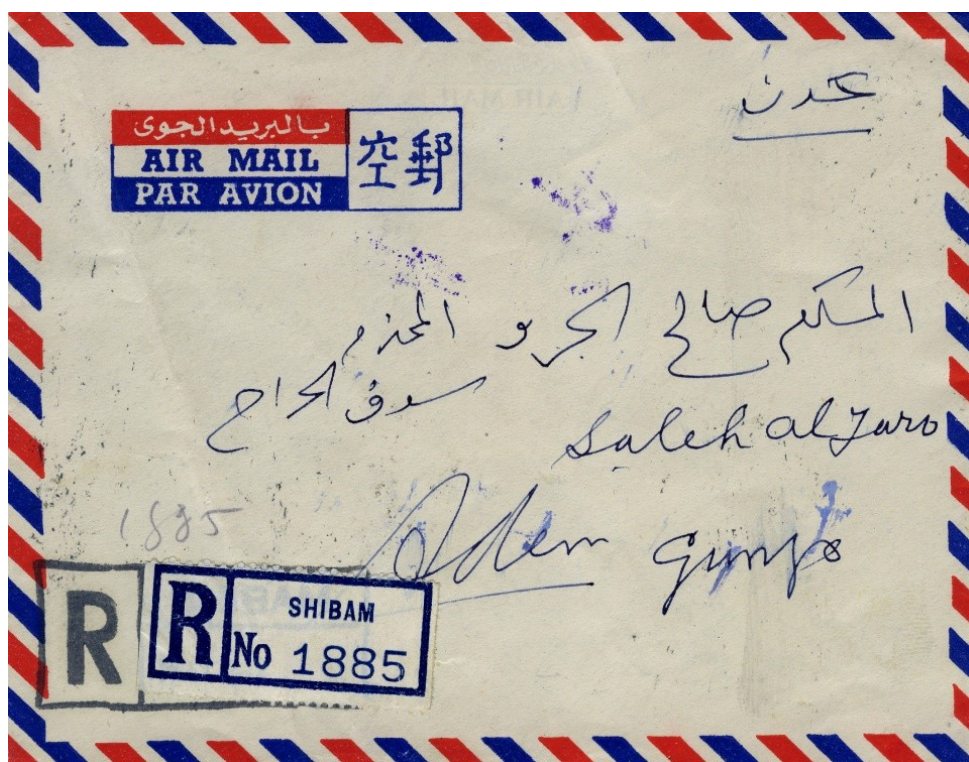 عدن
بالبريد الجوى
AIR MAIL
PAR AVION
空郵
المكرم صالح الجرو المحترم
سوق الحراج
Saleh al Jaro
Aden
1885
R
R
SHIBAM
No 1885